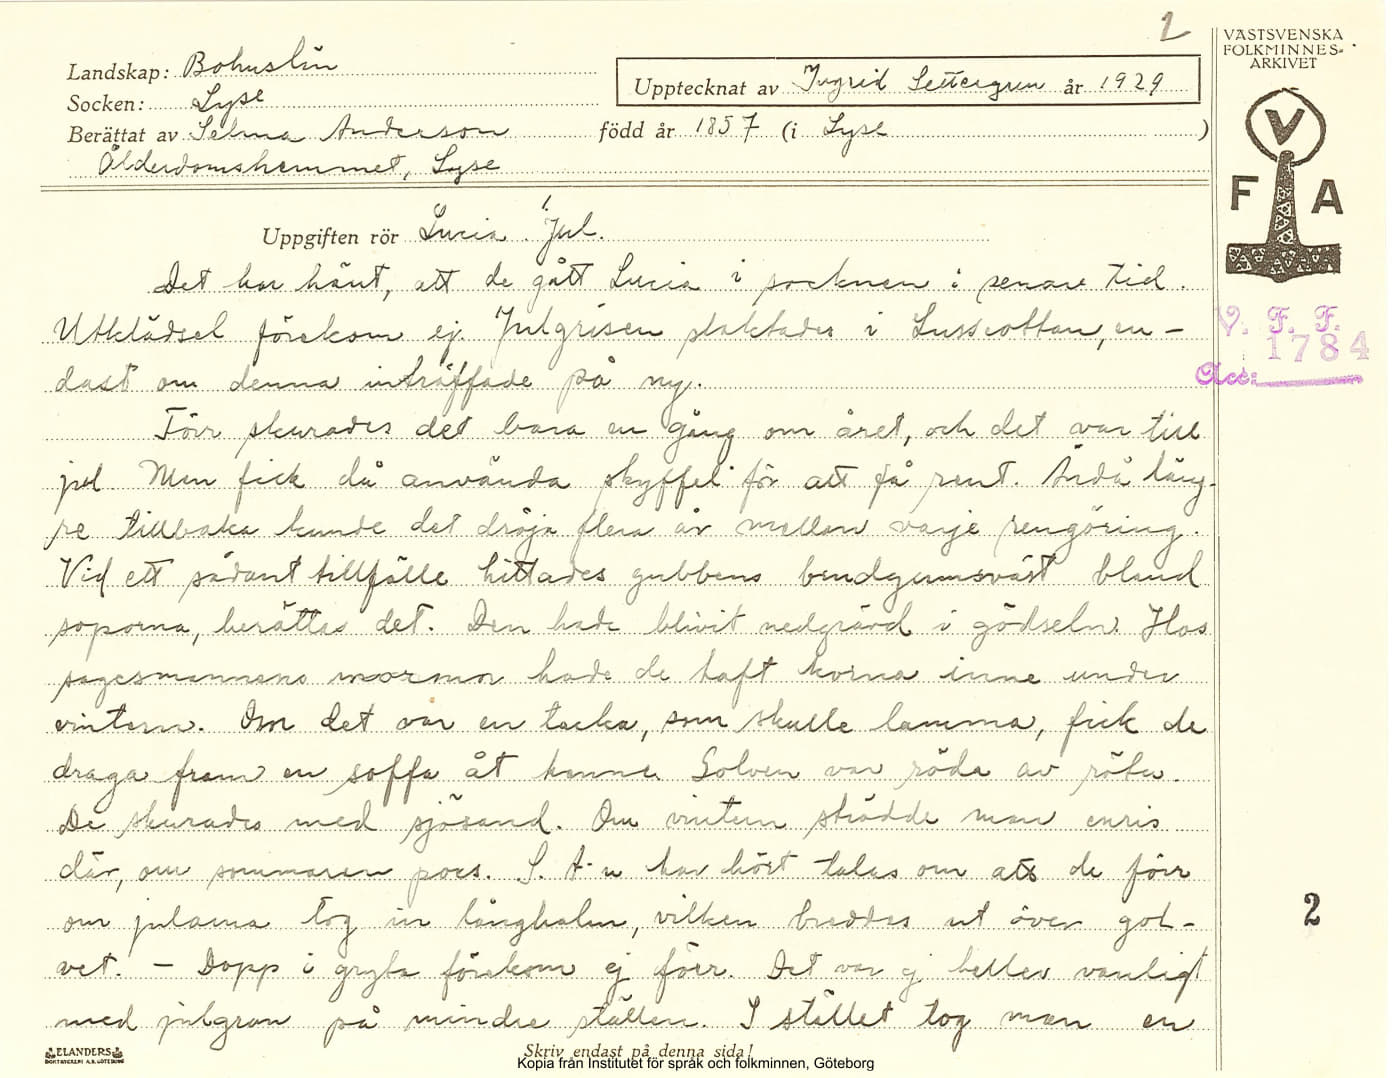 2
VÄSTSVENSKA
FOLKMINNES-
ARKIVET
V
F A
Landskap: Bohuslän
Socken: Lyse
Upptecknat av Ingrid Settergren år 1929
Berättat av Selma Anderson född år 1857 (i Lyse )
Ålderdomshemmet, Lyse
Uppgiften rör Lucia. Jul.
Det har hänt, att de gått Lucia i socknen i senare tid.
Utklädsel förekom ej. Julgrisen slaktades i Lusseottan, en-
dast om denna inträffade på ny.
V. F. F.
1784
Acc:
Förr skurades det bara en gång om året, och det var till
jul. Man fick då använda skyffel för att få rent. Ändå läng-
re tillbaka kunde det dröja flera år mellan varje rengöring.
Vid ett sådant tillfälle hittades gubbens bendgumsväst bland
soporna, berättas det. Den hade blivit nedgrävd i gödseln. Hos
sagesmannens mormor hade de haft korna inne under
vintern. Om det var en tacka, som skulle lamma, fick de
draga fram en soffa åt henne. Golven var röda av röta.
De skurades med sjösand. Om vintern strödde man enris
där, om sommaren pors. S. A-n har hört talas om att de förr
om jularna tog in långhalm, vilken breddes ut över gol-
vet. - Dopp i gryta förekom ej förr. Det var ej heller vanligt
med julgran på mindre ställen. I stället tog man en
2
ELANDERS
BOKTRYCKERI A.B. GÖTEBORG
Skriv endast på denna sida!
Kopia från Institutet för språk och folkminnen, Göteborg